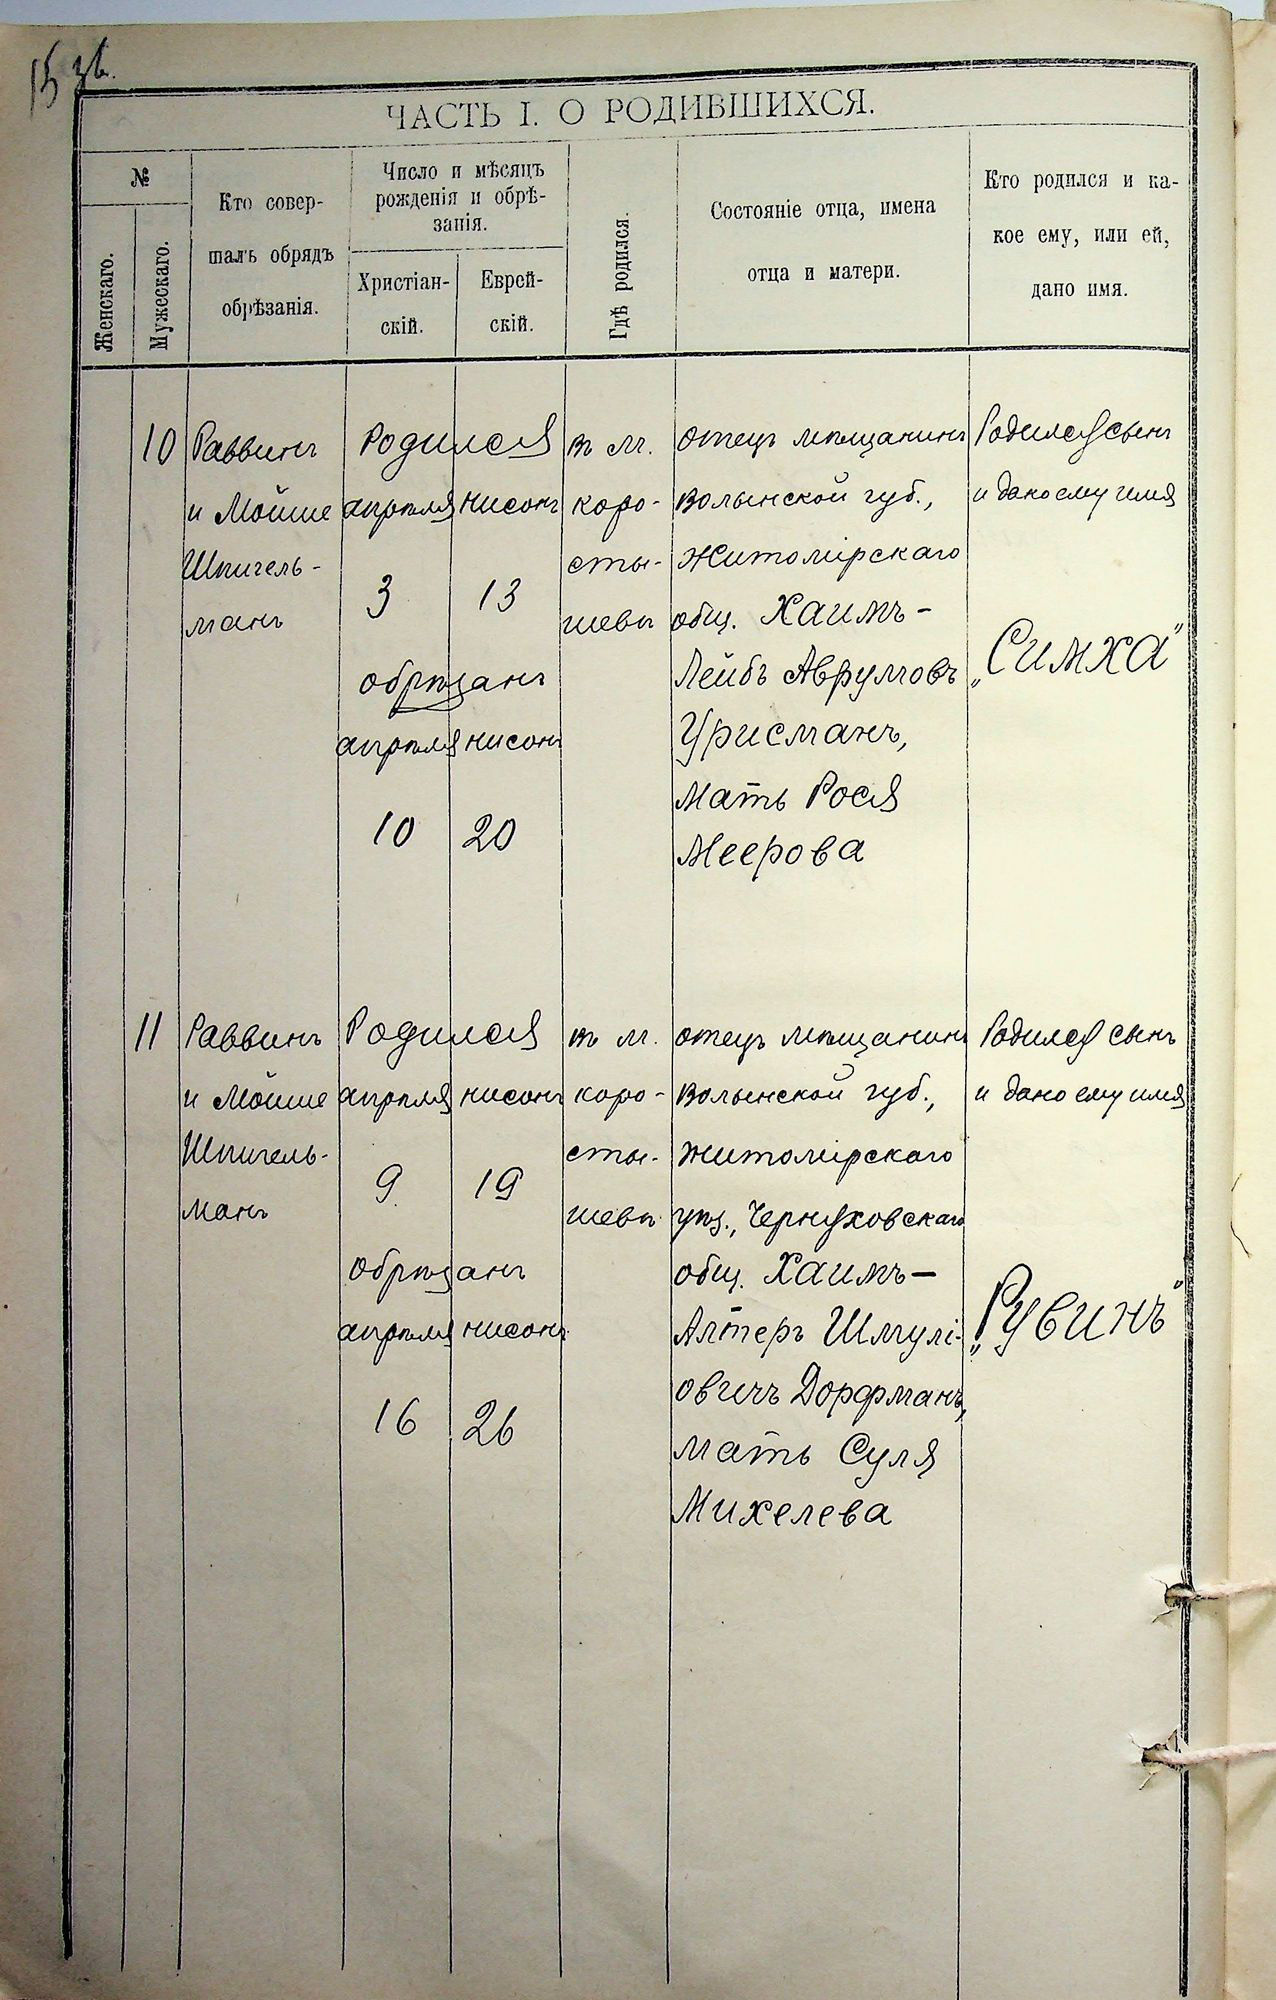 15 зв.
ЧАСТЬ I. О РОДИВШИХСЯ.
№
Женскаго.
Мужескаго.
Кто совер-
шалъ обрядъ
обрѣзанія.
Число и мѣсяцъ
рожденія и обрѣ-
занія.
Христіан-
скій.
Еврей-
скій.
Гдѣ родился.
Состояніе отца, имена
отца и матери.
Кто родился и ка-
кое ему, или ей,
дано имя.
10
Раввинъ
и Мойше
Шпигель-
манъ
Родился
апрѣля нисонъ
3 13
обрѣзанъ
апрѣля нисонъ
10 20
въ м.
коро-
сты-
шевѣ
отецъ мѣщанинъ
Волынской губ.,
Житомірскаго
общ. Хаимъ-
Лейбъ Аврумовъ
Урисманъ,
мать Рося
Меерова
Родился сынъ
и дано ему имя
„Симха"
11
Раввинъ
и Мойше
Шпигель-
манъ
Родился
апрѣля нисонъ
9 19
обрѣзанъ
апрѣля нисонъ
16 26
въ м.
коро-
сты-
шевѣ
отецъ мѣщанинъ
Волынской губ.,
Житомірскаго
уѣз., Черняховскаго
общ. Хаимъ-
Алтеръ Шмулі-
овичъ Дорфманъ,
мать Суля
Михелева
Родился сынъ
и дано ему имя
„Рувинъ"